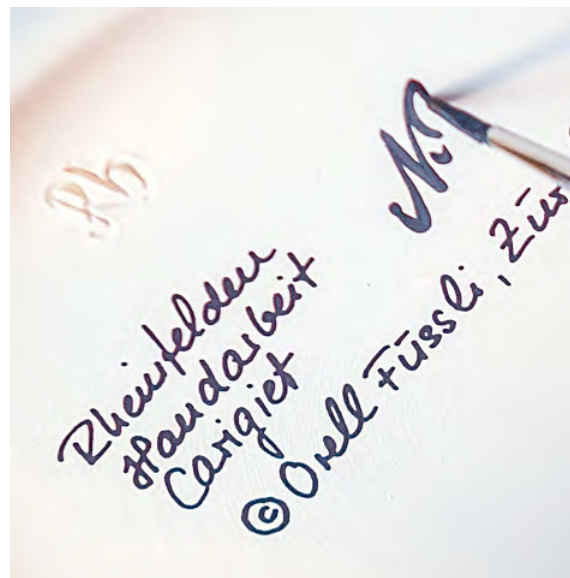 Rh
N.
Rheinfelden
Handarbeit
Carigiet
© Orell Füssli, Zür